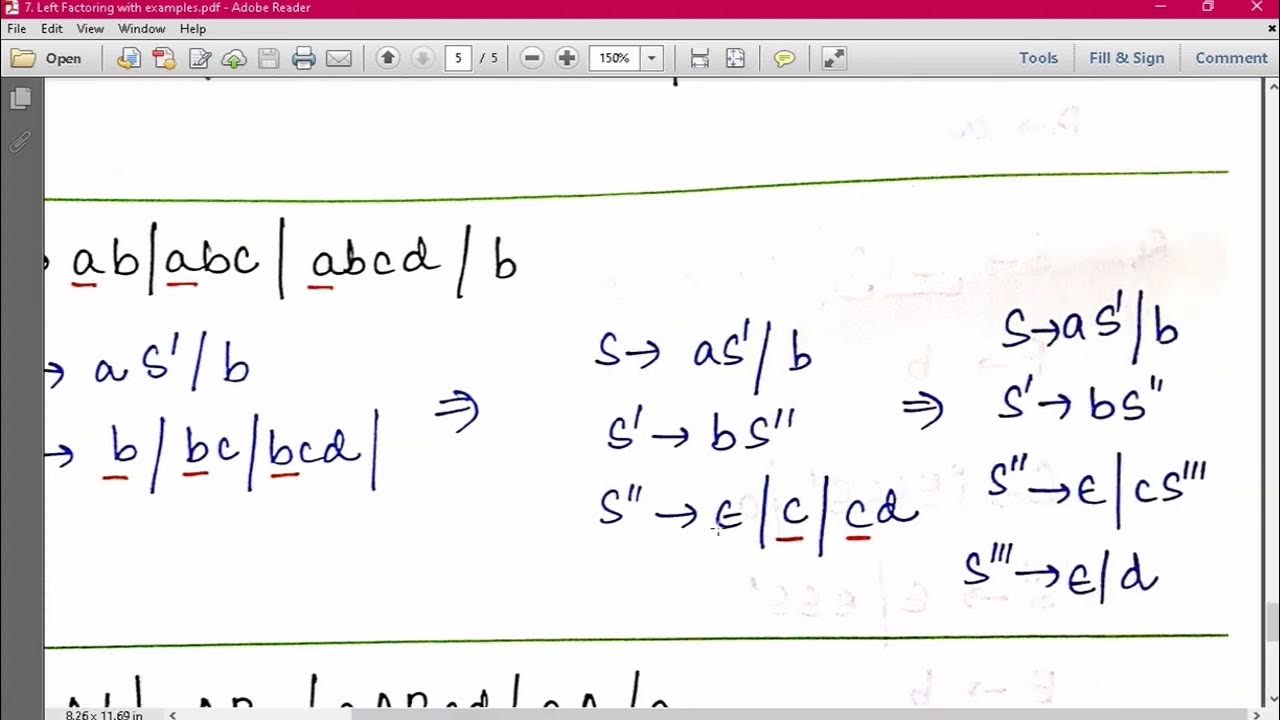 7. Left Factoring with examples.pdf - Adobe Reader
File Edit View Window Help
Open 5 / 5 150% Tools Fill & Sign Comment
→ ab|abc| abcd / b
→ aS'/b
→ b/bc|bcd|
⇒
S→ aS'/b
S'→bS''
S''→ϵ|c|cd
⇒
S→aS'/b
S'→bS''
S''→ϵ|cS'''
S'''→ϵ/d
8.26 x 11.69 in